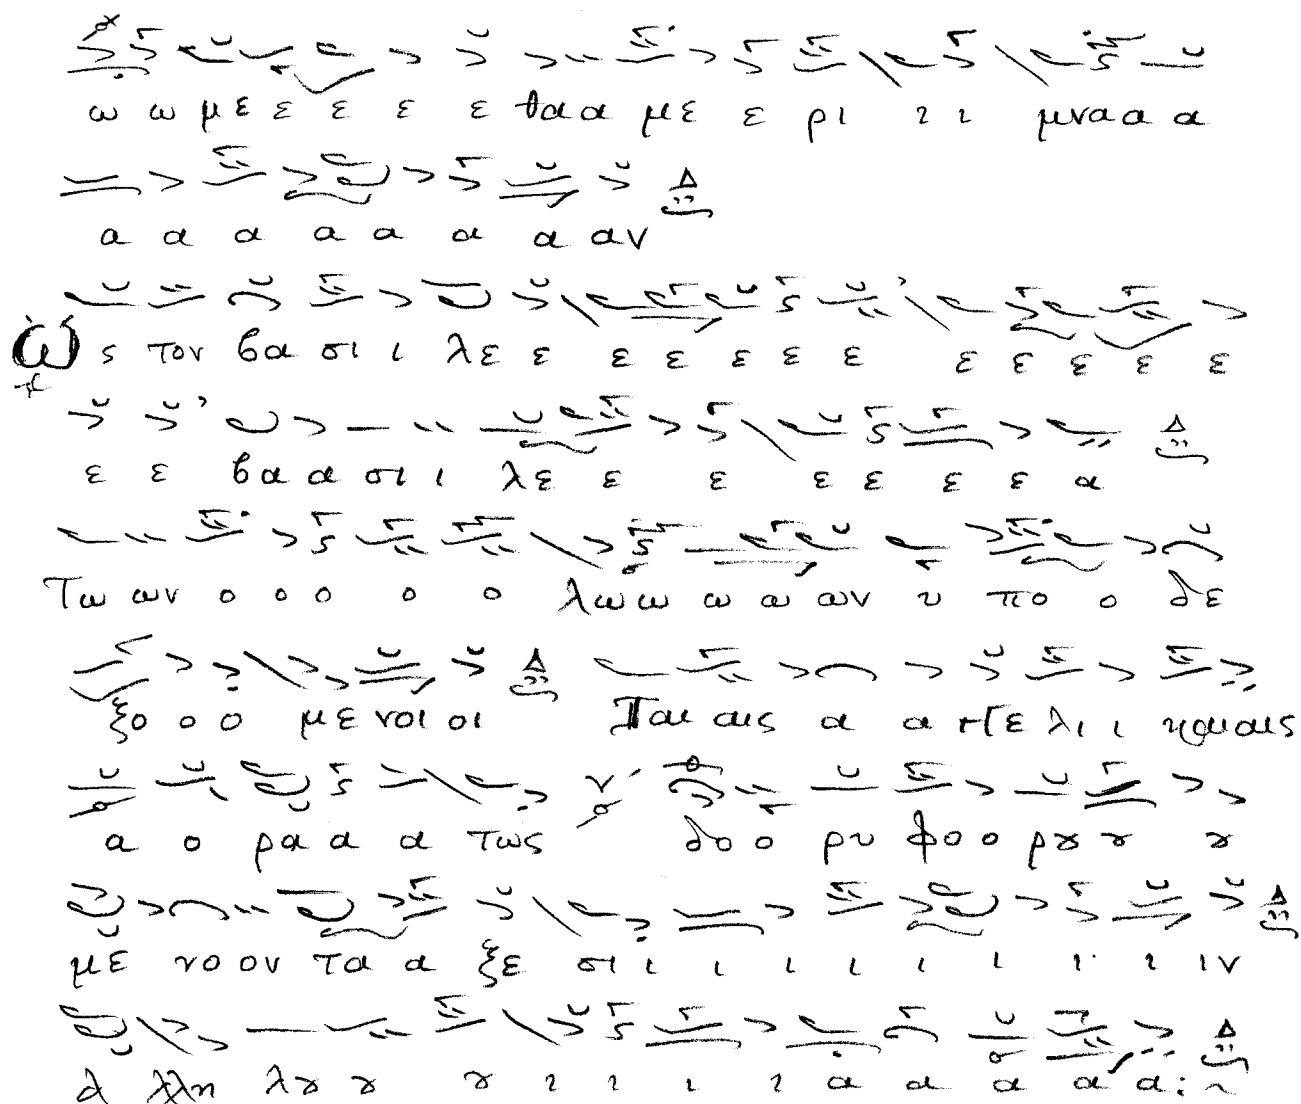 ω ω με ε ε ε ε θα α με ε ρι ι ι μνα α α
α α α α α α α αν
Ὡ ς τον βα σι ι λε ε ε ε ε ε ε ε ε ε ε ε
ε ε βα α σι ι λε ε ε ε ε ε ε α
Τω ων ο ο ο ο ο λω ω ω ω ων υ πο ο δε
ξο ο ο με νοι οι Ταις αις α α γγε λι ι καις
α ο ρα α α τως δο ο ρυ φο ο ρȣ ȣ ȣ
με νο ον τα α ξε σι ι ι ι ι ι ι ι ι ιν
α λλη λȣ ȣ ȣ ι ι ι ι α α α α α :~